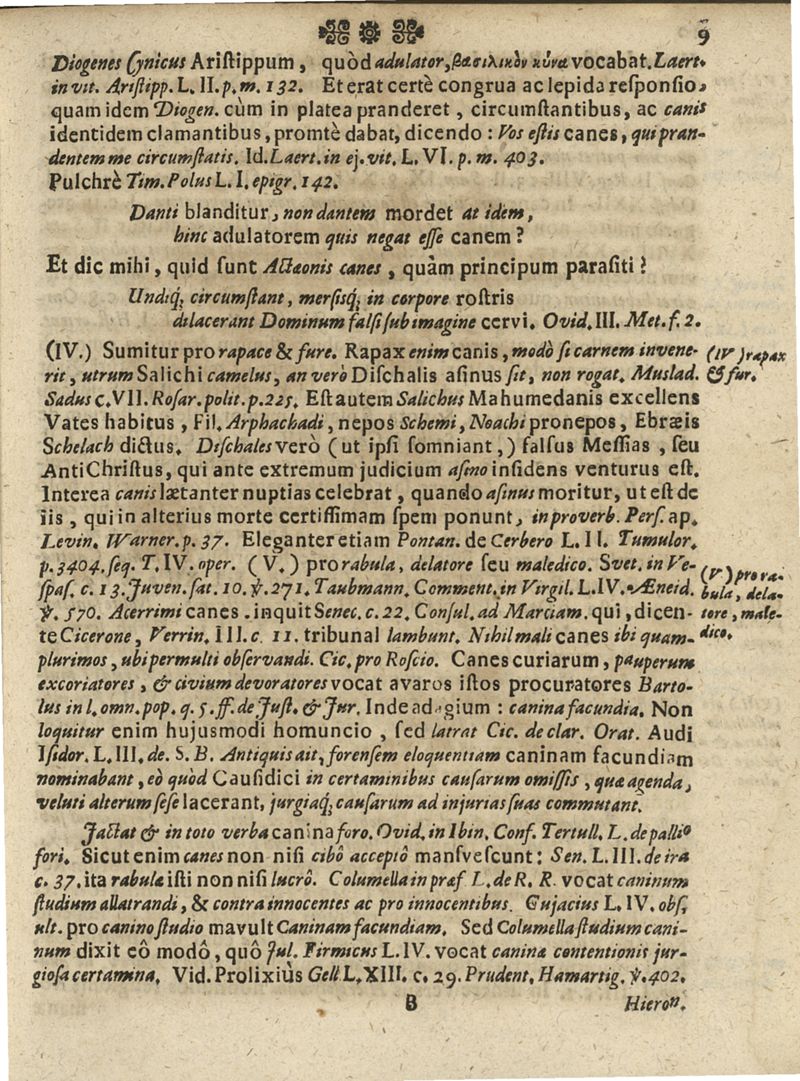 9
Diogenes Cynicus Ariſtippum, quòd adulator, βασιλικὸν κύνα vocabat. Laert.
in vit. Ariſtipp. L. II. p. m. 132. Et erat certè congrua ac lepida reſponſio,
quam idem Diogen. cùm in platea pranderet, circumſtantibus, ac canis
identidem clamantibus, promtè dabat, dicendo: Vos eſtis canes, qui pran-
dentem me circumſtatis. Id. Laert. in ej. vit. L. VI. p. m. 403.
Pulchrè Tim. Polus L. I. epigr. 142.
Danti blanditur, non dantem mordet at idem,
hinc adulatorem quis negat eſſe canem?
Et dic mihi, quid ſunt Actæonis canes, quàm principum paraſiti?
Undiq; circumſtant, merſisq; in corpore roſtris
dilacerant Dominum falſi ſub imagine cervi. Ovid. III. Met. f. 2.
(IV.) Sumitur pro rapace & fure. Rapax enim canis, modò ſi carnem invene- (IV) rapax
rit, utrum Salichi camelus, an verò Diſchalis aſinus ſit, non rogat. Muslad. & fur.
Sadus c. VII. Roſar. polit. p. 225. Eſt autem Salichus Mahumedanis excellens
Vates habitus, Fil. Arphachadi, nepos Schemi, Noachi pronepos, Ebræis
Schelach dictus. Diſchales verò (ut ipſi ſomniant,) falſus Meſſias, ſeu
AntiChriſtus, qui ante extremum judicium aſino inſidens venturus eſt.
Interea canis lætanter nuptias celebrat, quando aſinus moritur, ut eſt de
iis, qui in alterius morte certiſſimam ſpem ponunt, in proverb. Perſ. ap.
Levin. Warner. p. 37. Eleganter etiam Pontan. de Cerbero L. II. Tumulor.
p. 3404. ſeq. T. IV. oper. (V.) pro rabula, delatore ſeu maledico. Svet. in Ve- (V) pro ra-
ſpaſ. c. 13. Juven. ſat. 10. ℣. 271. Taubmann. Comment. in Virgil. L. IV. Æneid. bula, dela-
℣. 570. Acerrimi canes. inquit Senec. c. 22. Conſul. ad Marciam. qui, dicen- tore, male-
te Cicerone, Verrin. III. c. 11. tribunal lambunt. Nihil mali canes ibi quam- dico.
plurimos, ubi permulti obſervandi. Cic. pro Roſcio. Canes curiarum, pauperum
excoriatores, & civium devoratores vocat avaros iſtos procuratores Barto-
lus in l. omn. pop. q. 5. ff. de Juſt. & Jur. Inde adagium: canina facundia. Non
loquitur enim hujusmodi homuncio, ſed latrat Cic. de clar. Orat. Audi
Iſidor. L. III. de. S. B. Antiquis ait, forenſem eloquentiam caninam facundiam
nominabant, eò quòd Cauſidici in certaminibus cauſarum omiſſis, quæ agenda,
veluti alterum ſeſe lacerant, jurgiaq; cauſarum ad injurias ſuas commutant.
Jactat & in toto verba canina foro. Ovid. in Ibin. Conf. Tertull. L. de pallio
fori. Sicut enim canes non niſi cibô acceptô manſveſcunt: Sen. L. III. de ira
c. 37. ita rabulæ iſti non niſi lucrô. Columella in præf L. de R. R. vocat caninum
ſtudium allatrandi, & contra innocentes ac pro innocentibus. Cujacius L. IV. obſ,
ult. pro canino ſtudio mavult Caninam facundiam. Sed Columella ſtudium cani-
num dixit eô modô, quô Jul. Firmicus L. IV. vocat canina contentionis jur-
gioſa certamina. Vid. Prolixiùs Gell L. XIII. c. 29. Prudent. Hamartig. ℣. 402.
B Hieron.